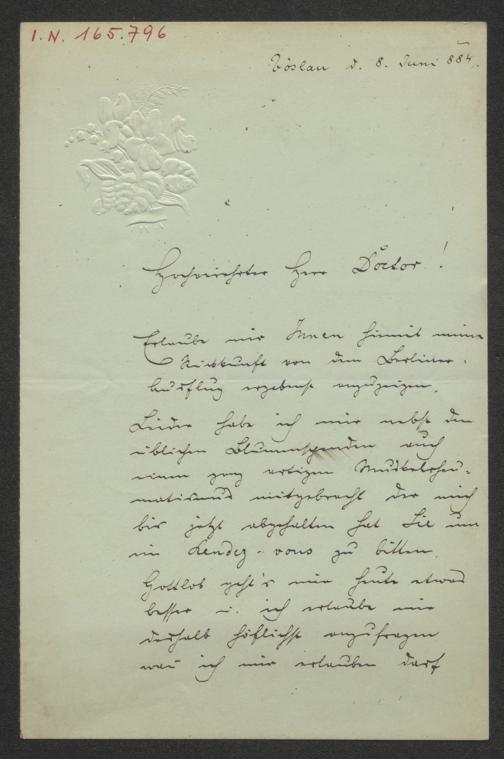 I. N. 165.796
Vöslau d. 8. Juni 884.
Hochverehrter Herr Doctor!
Erlaube mir Ihnen hiemit meine
Rückkunft von dem Berliner-
Ausflug ergebenst anzuzeigen.
Leider habe ich mir nebst den
üblichen Blumenspenden auch
einen ganz artigen Muskelrheu-
matismus mitgebracht der mich
bis jetzt abgehalten hat Sie um
ein Rendez-vous zu bitten.
Gottlob geht's mir heute etwas
besser u. ich erlaube mir
deshalb höflichst anzufragen
wan ich mir erlauben darf